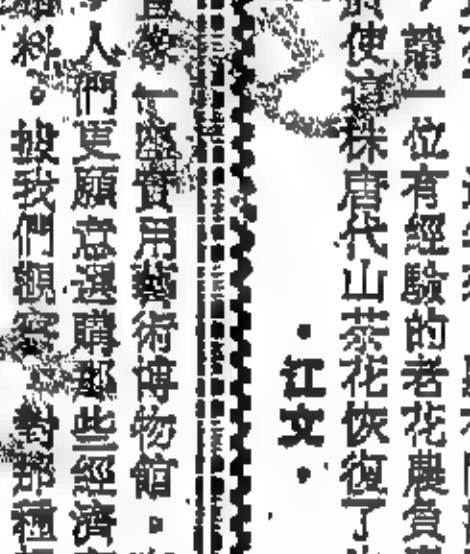 請一位有經驗的老花農負
使這株唐代山茶花恢復了
·江文·
像一座實用藝術博物館。
人們更願意選購那些經濟
料。據我們觀察，對那種